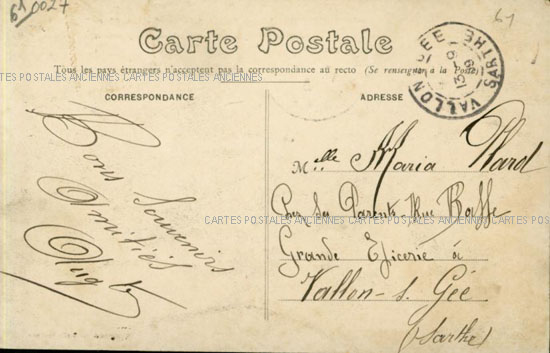 61 0027
61
Carte Postale
Tous les pays étrangers n'acceptent pas la correspondance au recto (Se renseigner à la Poste)
CARTES POSTALES ANCIENNES CARTES POSTALES ANCIENNES
CORRESPONDANCE
ADRESSE
VALLON GÉE
SARTHE
Bons Souvenirs
Amitiés
Melle Maria
Chez Ses Parents Rue
CARTES POSTALES ANCIENNES CARTES POSTALES ANCIENNES
Grande Epicerie à
Vallon-s. Gée
(Sarthe)